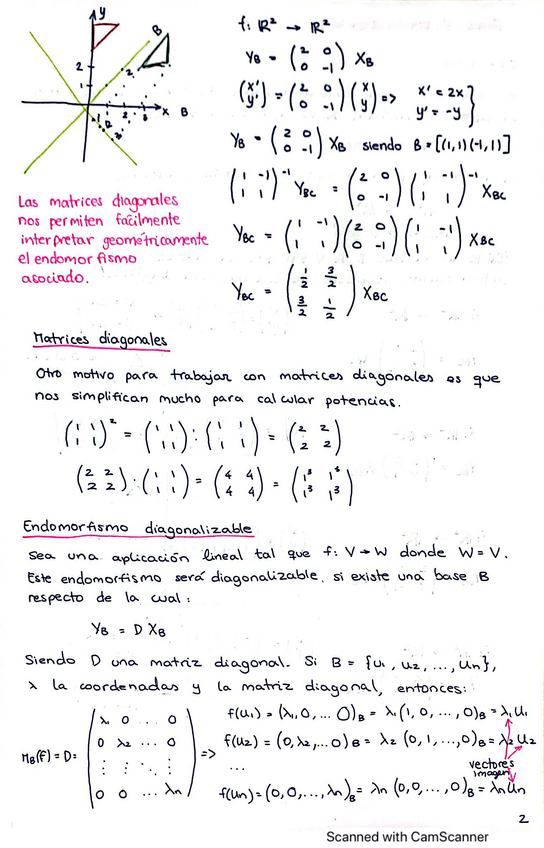 y
B
2
1
x
B
1 2 3
f: ℝ² → ℝ²
Y_B = (2 0; 0 -1) X_B
(x'; y') = (2 0; 0 -1) (x; y) => x' = 2x y' = -y }
Y_B = (2 0; 0 -1) X_B siendo B = [(1,1)(-1,1)]
(1 -1; 1 1)⁻¹ Y_BC = (2 0; 0 -1) (1 -1; 1 1)⁻¹ X_BC
Y_BC = (1 -1; 1 1) (2 0; 0 -1) (1 -1; 1 1) X_BC
Y_BC = (1/2 3/2; 3/2 1/2) X_BC
Las matrices diagonales
nos permiten facilmente
interpretar geométricamente
el endomorfismo
asociado.
Matrices diagonales
Otro motivo para trabajar con matrices diagonales es que
nos simplifican mucho para calcular potencias.
(1 1; 1 1)² = (1 1; 1 1) · (1 1; 1 1) = (2 2; 2 2)
(2 2; 2 2) · (1 1; 1 1) = (4 4; 4 4) = (1³ 1³; 1³ 1³)
Endomorfismo diagonalizable
Sea una aplicación lineal tal que f: V → W donde W = V.
Este endomorfismo será diagonalizable, si existe una base B
respecto de la cual:
Y_B = D X_B
Siendo D una matriz diagonal. Si B = {u₁, u₂, ..., un},
λ la coordenadas y la matriz diagonal, entonces:
M_B(F) = D = (λ₁ 0 ... 0; 0 λ₂ ... 0; ⋮ ⋮ ⋱ ⋮; 0 0 ... λn) =>
f(u₁) = (λ₁, 0, ... 0)_B = λ₁ (1, 0, ..., 0)_B = λ₁ u₁
f(u₂) = (0, λ₂, ... 0)_B = λ₂ (0, 1, ..., 0)_B = λ₂ u₂
...
vectores
imagen
f(un) = (0, 0, ..., λn)_B = λn (0, 0, ..., 0)_B = λn un
2
Scanned with CamScanner